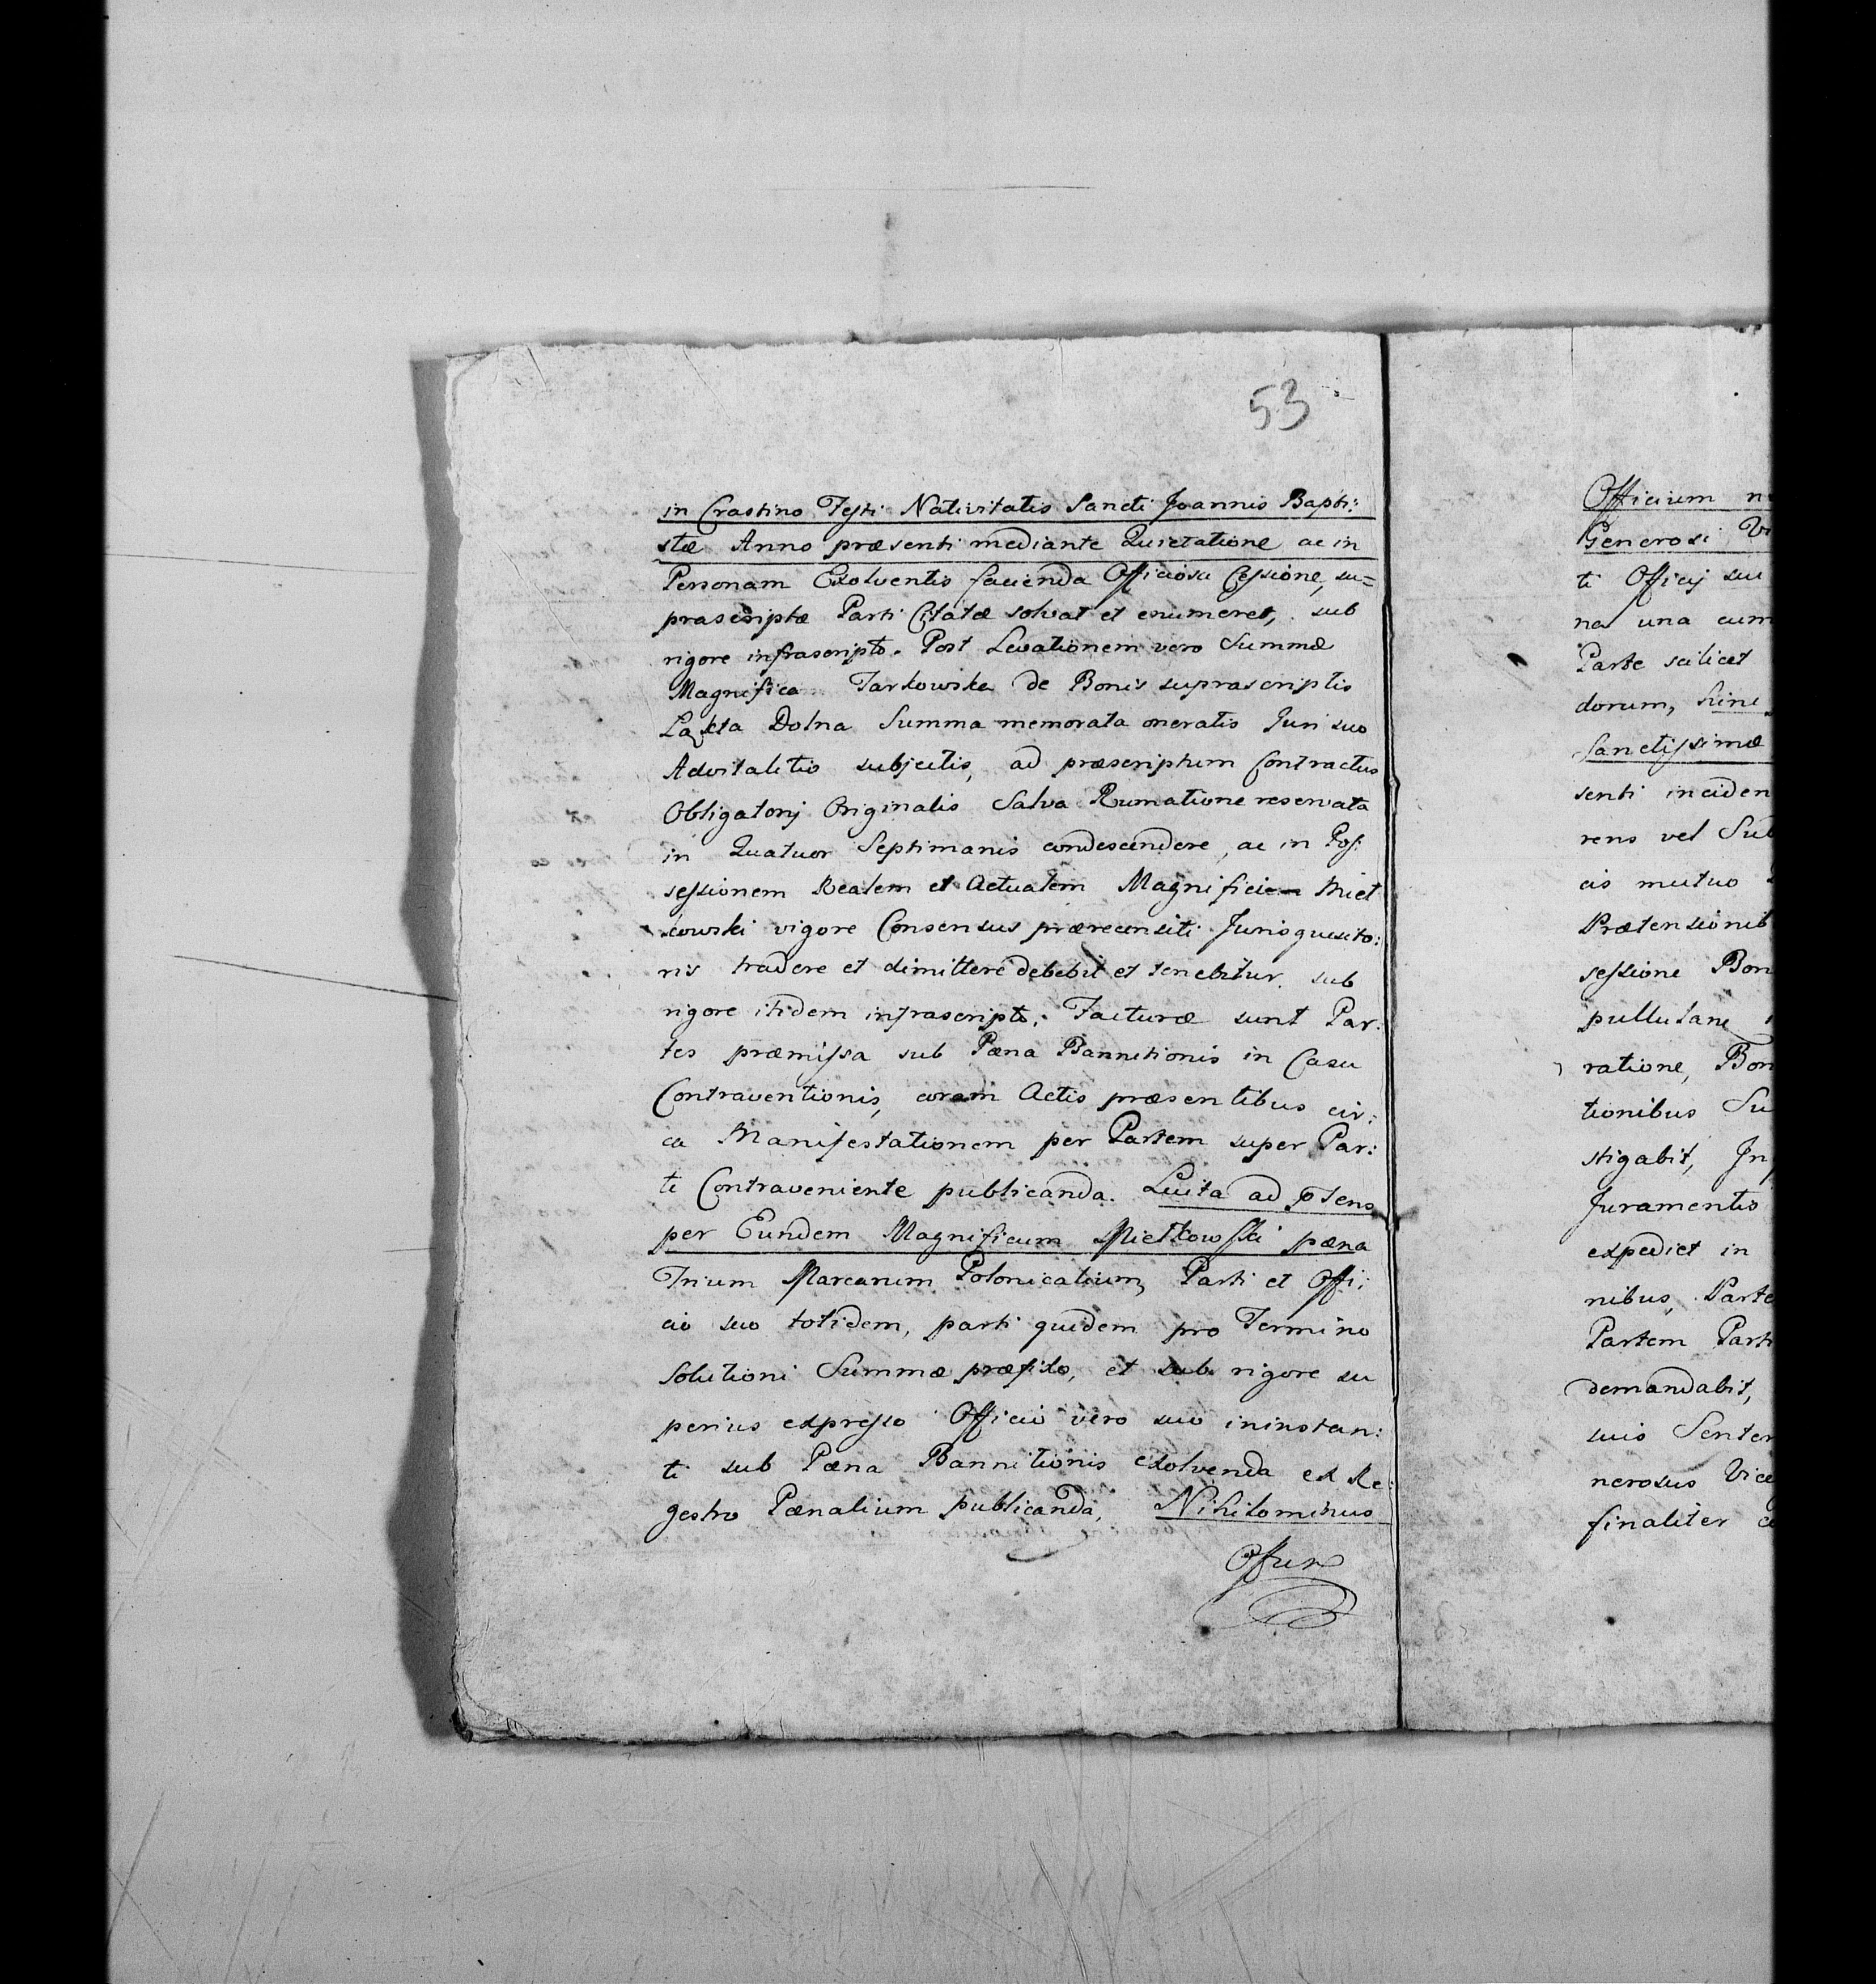 53
in Crastino Festi Nativitatis Sancti Joannis Bapti:
stæ Anno præsenti mediante Quietatione ac in
Personam Exolventis facienda Officiosa Cessione, su=
prascriptæ Parti Citatæ solvat et enumeret, sub
rigore infrascripto. Post Levationem vero Summæ
Magnifica Tarkowska de Bonis suprascriptis
Dolna Summa memorata oneratis Juri suo
Advitalitio subjectis, ad præscriptum Contractus
Obligatorij Originalis Salva Rumatione reservata
in Quatuor Septimanis condescendere, ac in Pos:
sessionem Realem et Actualem Magnifici Miet
kowski vigore Consensus prærecensiti Jurisquesito:
ris tradere et dimittere debebit et tenebitur sub
rigore itidem infrascripto; Facturæ sunt Par:
tes præmissa sub Pæna Bannitionis in Casu
Contraventionis, coram Actis præsentibus cir:
ca Manifestationem per Partem super Par:
te Contraveniente publicanda. Luita ad
per Eundem Magnificum Mietkowski pæna
Trium Marcarum Polonicalium, Parti et Offi:
cio suo totidem, parti quidem pro Termino
Solutioni Summæ præfixo, et sub rigore su
perius expresso Officio vero suo ininstan:
ti sub Pæna Bannitionis exolvenda ex Re:
gestro Pænalium publicanda, Nihilominus
Offium
Officium
Generosi
ti Officij sui
na una cum
Parte scilicet
dorum,
Sanctissimæ
senti inciden
rens vel Sub
cis mutuo
Prætensionib
sessione Bon
pullulane
ratione, Bon
tionibus Su
stigabit, In
Juramentis
expediet in
nibus, Parte
Partem Parti
demandabit,
suis Senten
nerosus Vice
finaliter